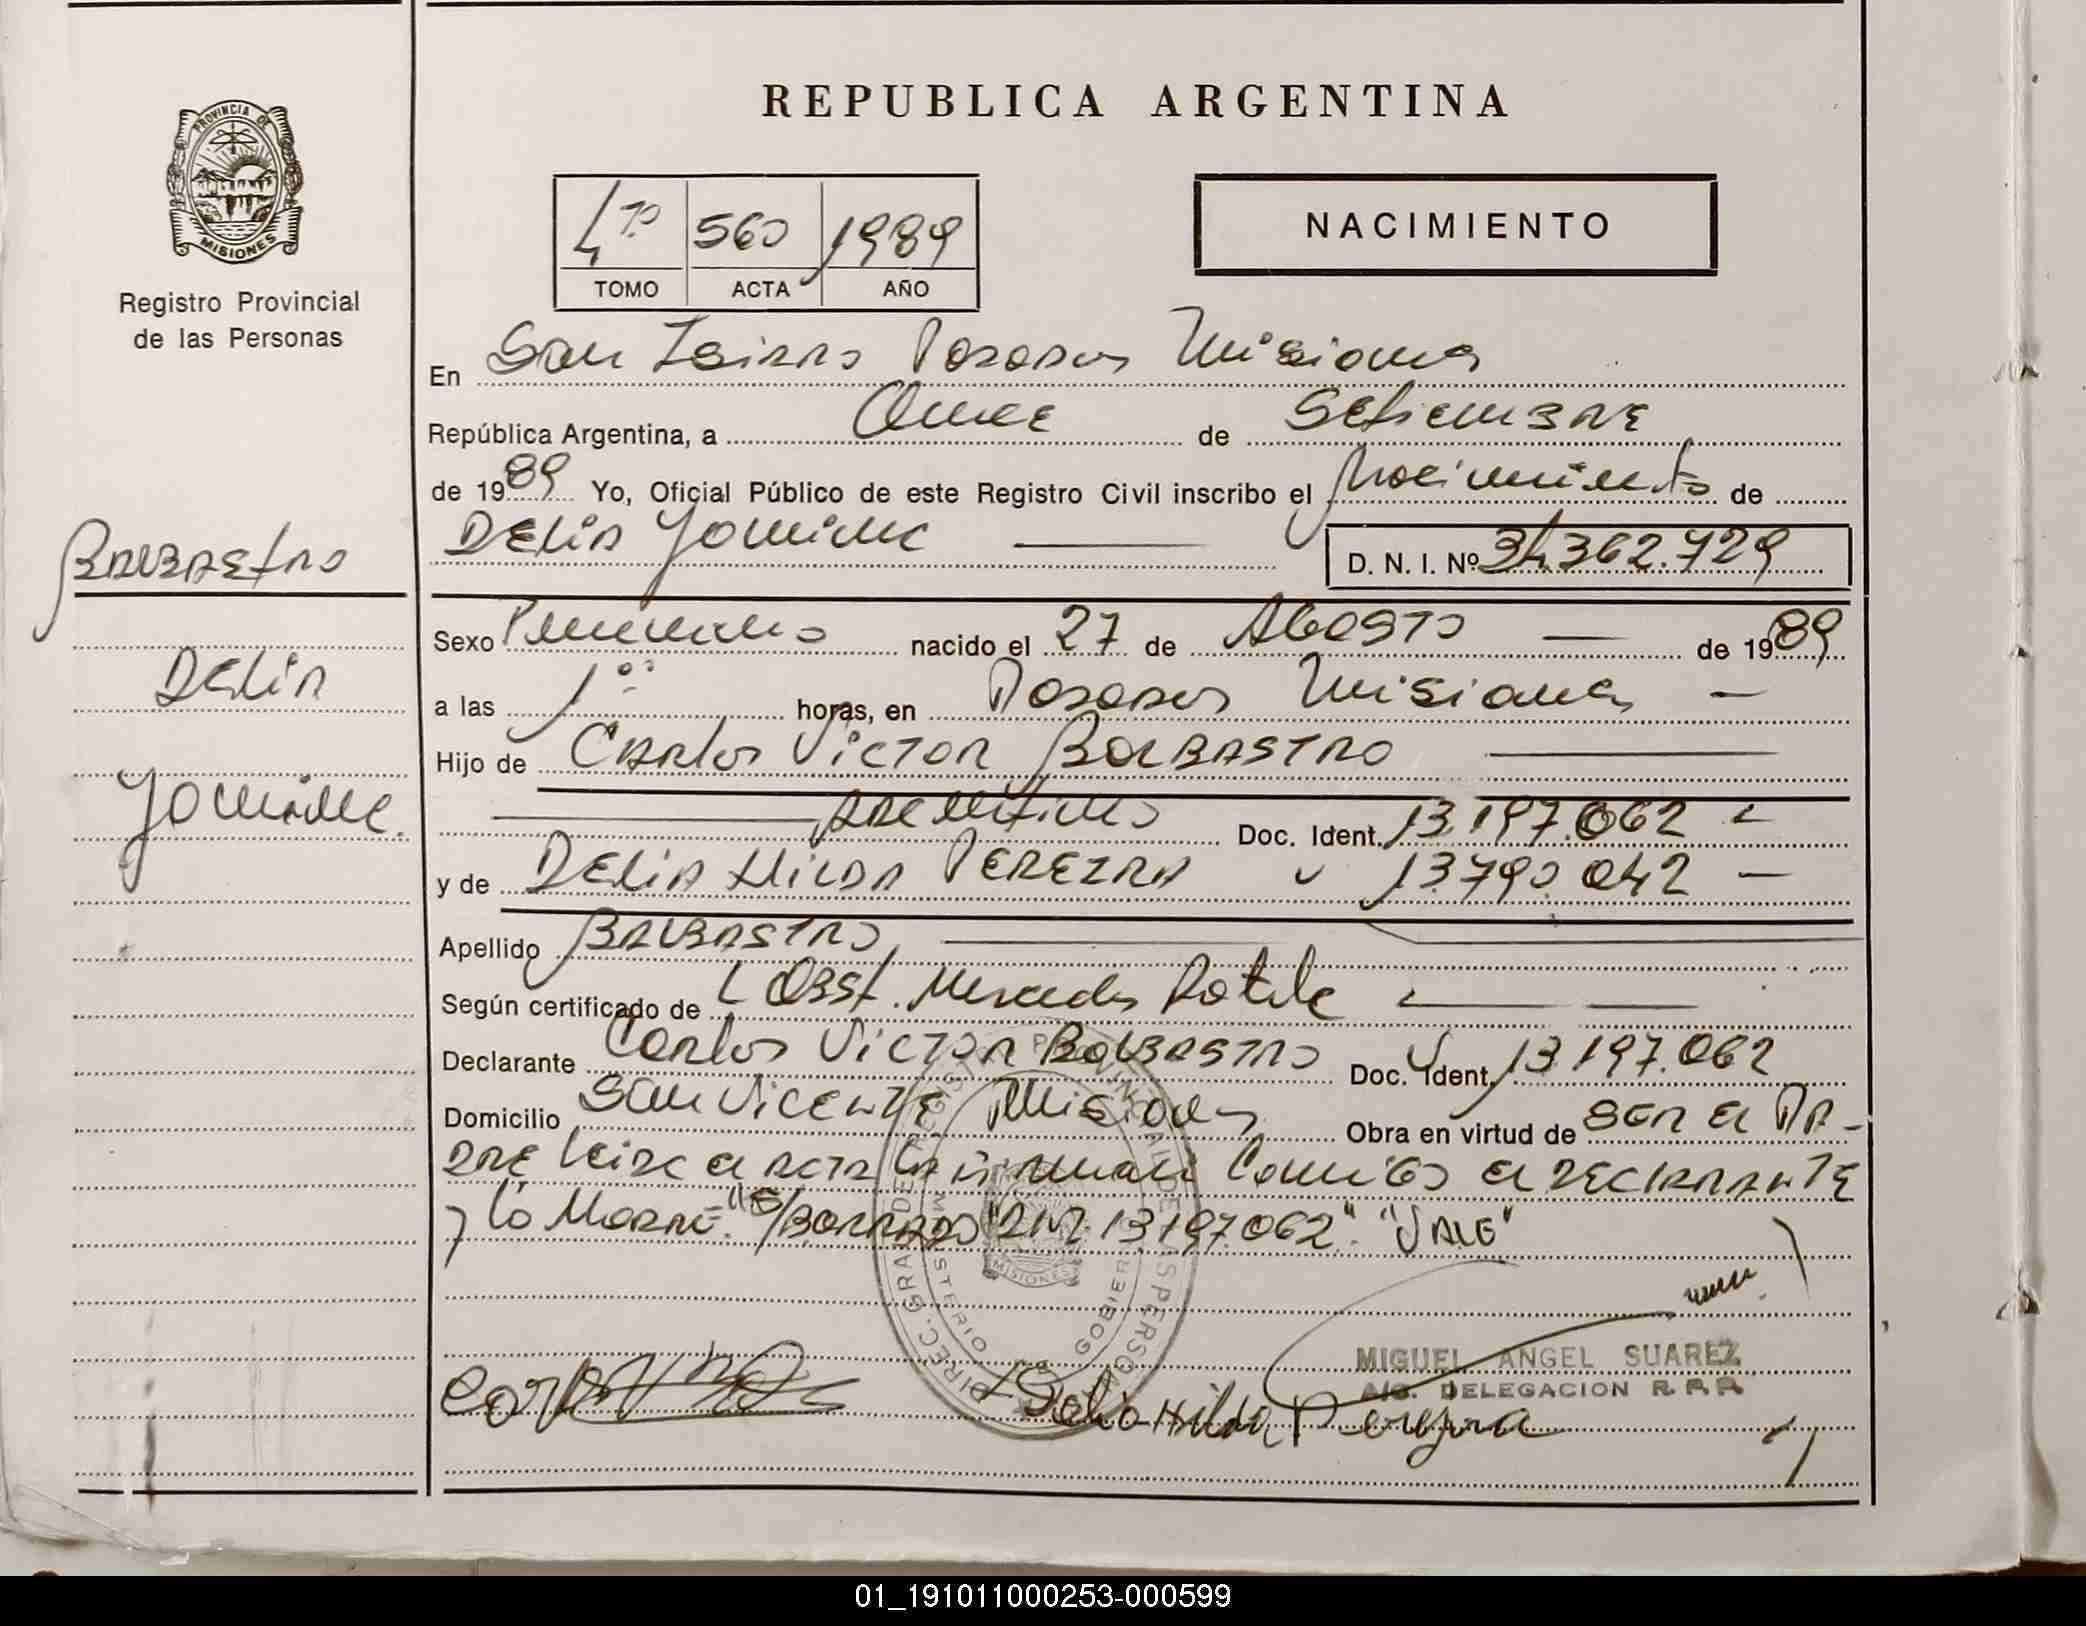 REPUBLICA ARGENTINA
PROVINCIA DE
MISIONES
Registro Provincial
de las Personas
4to 560 1989
TOMO ACTA AÑO
NACIMIENTO
En San Isidro Posadas Misiones
República Argentina, a Once de Setiembre
de 1989 Yo, Oficial Público de este Registro Civil inscribo el Nacimiento de
Delia Yomine D. N. I. Nº 34.362.729
Balbastro
Delia
Yomine.
Sexo Femenino nacido el 27 de Agosto de 1989
a las 1 horas, en Posadas Misiones
Hijo de Carlos Victor Balbastro
Argentino Doc. Ident. 13.197.062
y de Delia Hilda Pereira 13.790.042
Apellido Balbastro
Según certificado de Obst. Mercedes
Declarante Carlos Victor Balbastro Doc. Ident. 13.197.062
Domicilio San Vicente Misiones Obra en virtud de ser el pa-
dre Leida el acta la firman Conmigo el declarante
y la Madre. "S/Borrado "DNI. 13.197.062". "Vale"
DIREC. GRAL. DE REGISTRO PROVINCIAL DE LAS PERSONAS
MINISTERIO GOBIERNO
MISIONES
MIGUEL ANGEL SUAREZ
A/C. DELEGACION R. P. P.
Delia Hilda Pereyra
01_191011000253-000599